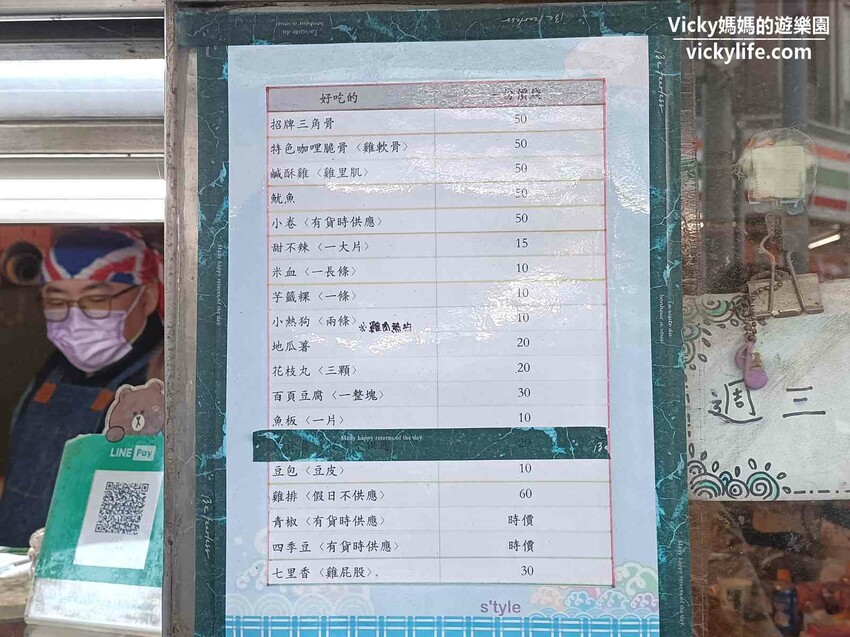 Vicky媽媽的遊樂園
vickylife.com
Be fearless
好吃的 一份價錢
招牌三角骨 50
特色咖哩脆骨〈雞軟骨〉 50
鹹酥雞〈雞里肌〉 50
魷魚 50
小卷〈有貨時供應〉 50
甜不辣〈一大片〉 15
米血〈一長條〉 10
芋籤粿〈一條〉 10
小熱狗〈兩條〉 ※雞肉熱狗 10
地瓜薯 20
花枝丸〈三顆〉 20
百頁豆腐〈一整塊〉 30
魚板〈一片〉 10
Many happy returns of the day
20
豆包〈豆皮〉 10
雞排〈假日不供應〉 60
青椒〈有貨時供應〉 時價
四季豆〈有貨時供應〉 時價
七里香〈雞屁股〉. 30
s'tyle
LINE Pay
週三